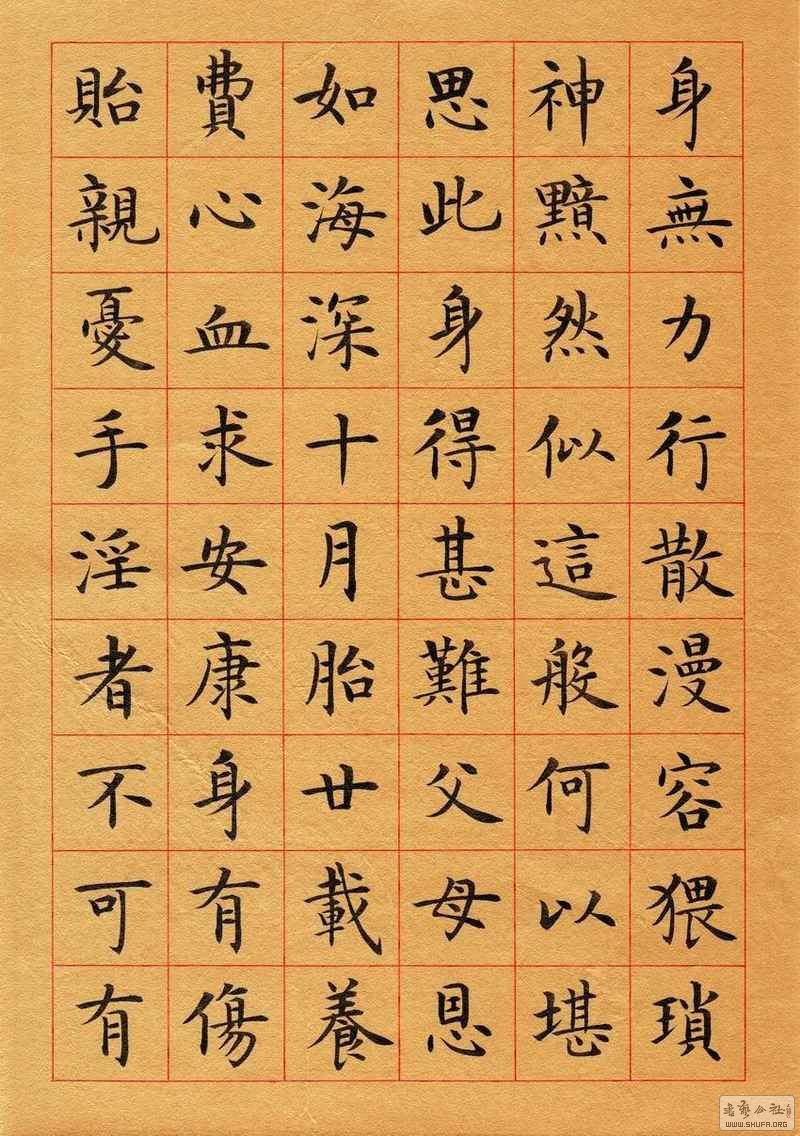 身無力行散漫容猥瑣
神黯然似這般何以堪
思此身得甚難父母恩
如海深十月胎廿載養
費心血求安康身有傷
貽親憂手淫者不可有
书艺公社
WWW.SHUFA.ORG